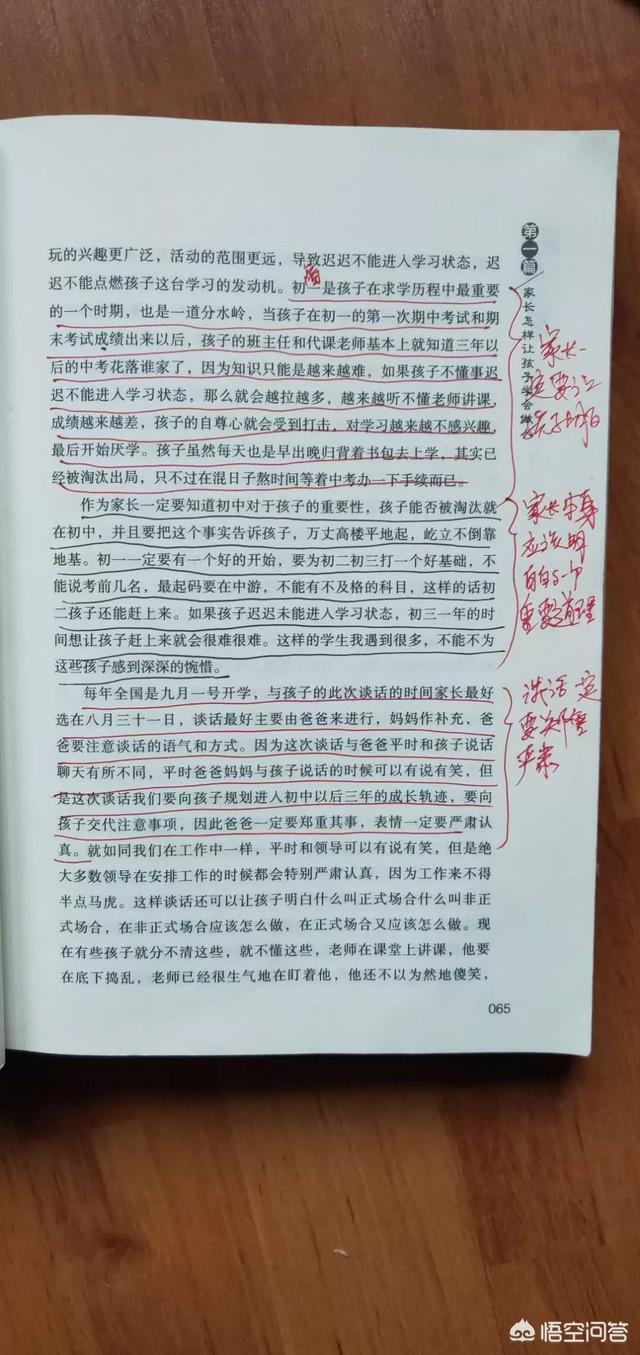 玩的兴趣更广泛，活动的范围更远，导致迟迟不能进入学习状态，迟
迟不能点燃孩子这台学习的发动机。初一是孩子在求学历程中最重要
的一个时期，也是一道分水岭，当孩子在初一的第一次期中考试和期
末考试成绩出来以后，孩子的班主任和代课老师基本上就知道三年以
后的中考花落谁家了，因为知识只能是越来越难，如果孩子不懂事迟
迟不能进入学习状态，那么就会越拉越多，越来越听不懂老师讲课，
成绩越来越差，孩子的自尊心就会受到打击，对学习越来越不感兴趣，
最后开始厌学。孩子虽然每天也是早出晚归背着书包去上学，其实已
经被淘汰出局，只不过在混日子熬时间等着中考办一下手续而已。
作为家长一定要知道初中对于孩子的重要性，孩子能否被淘汰就
在初中，并且要把这个事实告诉孩子，万丈高楼平地起，屹立不倒靠
地基。初一一定要有一个好的开始，要为初二初三打一个好基础，不
能说考前几名，最起码要在中游，不能有不及格的科目，这样的话初
二孩子还能赶上来。如果孩子迟迟未能进入学习状态，初三一年的时
间想让孩子赶上来就会很难很难。这样的学生我遇到很多，不能不为
这些孩子感到深深的惋惜。
每年全国是九月一号开学，与孩子的此次谈话的时间家长最好
选在八月三十一日，谈话最好主要由爸爸来进行，妈妈作补充，爸
爸要注意谈话的语气和方式。因为这次谈话与爸爸平时和孩子说话
聊天有所不同，平时爸爸妈妈与孩子说话的时候可以有说有笑，但
是这次谈话我们要向孩子规划进入初中以后三年的成长轨迹，要向
孩子交代注意事项，因此爸爸一定要郑重其事，表情一定要严肃认
真。就如同我们在工作中一样，平时和领导可以有说有笑，但是绝
大多数领导在安排工作的时候都会特别严肃认真，因为工作来不得
半点马虎。这样谈话还可以让孩子明白什么叫正式场合什么叫非正
式场合，在非正式场合应该怎么做，在正式场合又应该怎么做。现
在有些孩子就分不清这些，就不懂这些，老师在课堂上讲课，他要
在底下捣乱，老师已经很生气地在盯着他，他还不以为然地傻笑，
065
第一篇
家长怎样让孩子学会做
家长一
定要让
孩子明白
家长本身
应该明
白的一个
重要道理
谈话一定
要郑重
严肃
悟空问答